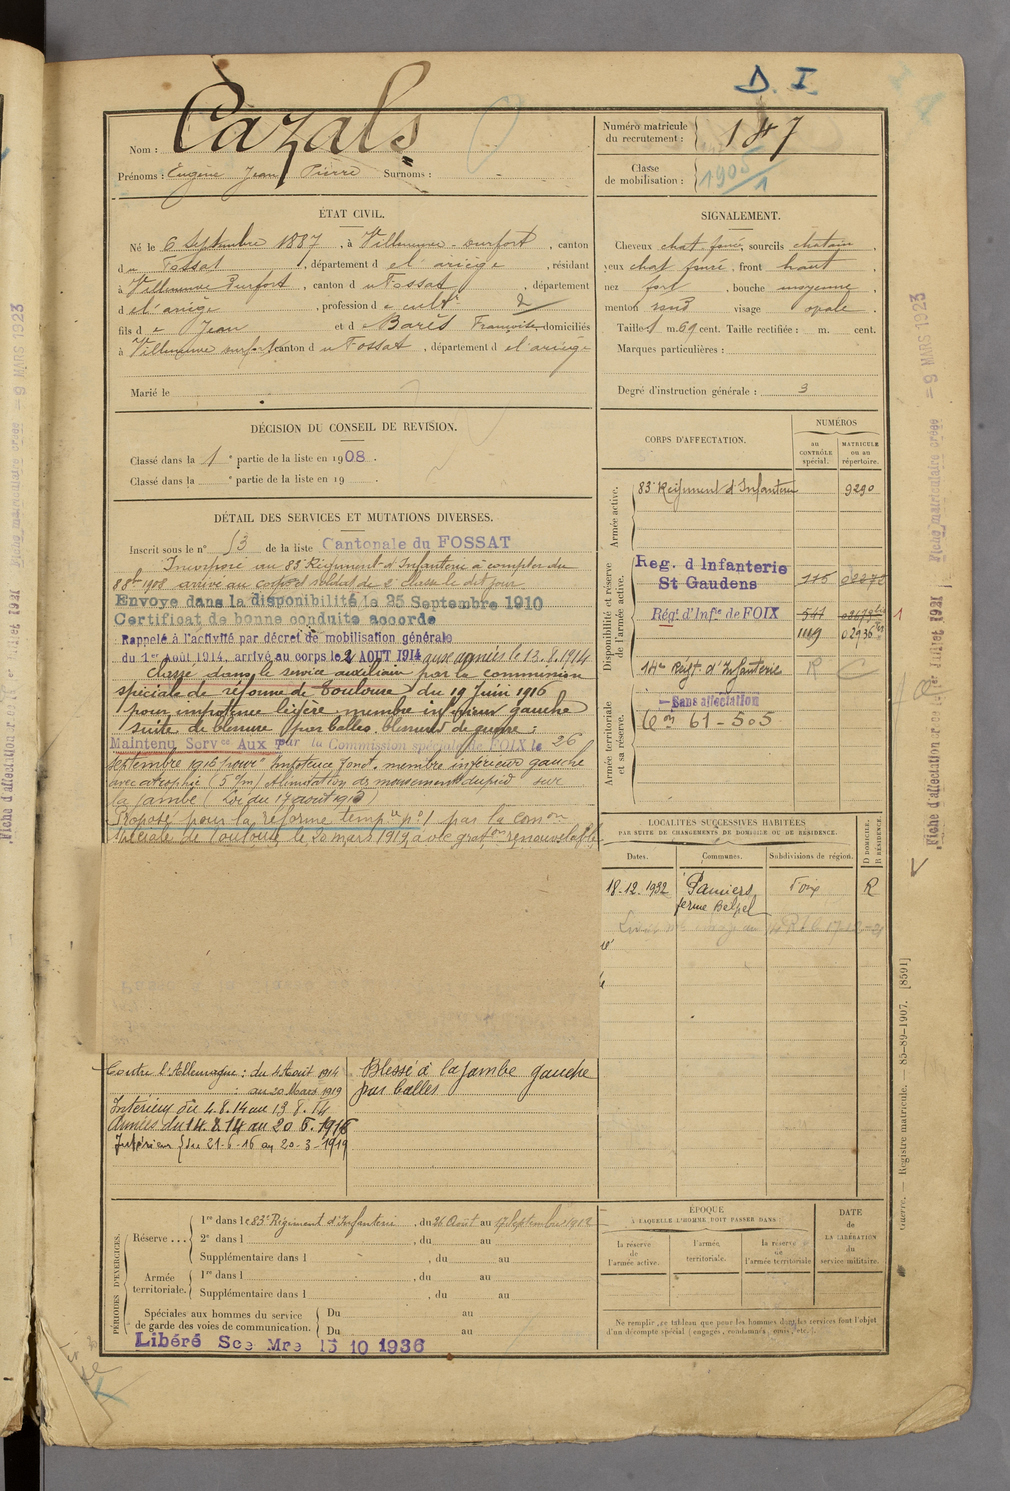 D. I.
Nom : Cazals
Prénoms : Eugène Jean Pierre Surnoms : -
Numéro matricule du recrutement : 147
Classe de mobilisation : 1905/1
ÉTAT CIVIL.
Né le 6 Septembre 1887, à Villeneuve-durfort, canton
du Fossat, département de l'ariège, résidant
à Villeneuve Durfort, canton du Fossat, département
de l'ariège, profession de cultr 2
fils de Jean et de Barès Françoise domiciliés
à Villeneuve durfort canton du Fossat, département de l'ariège
Marié le
SIGNALEMENT.
Cheveux chat. foncé, sourcils chatain,
yeux chat foncé, front haut,
nez fort, bouche moyenne,
menton rond visage ovale.
Taille 1 m. 69 cent. Taille rectifiée : m. cent.
Marques particulières :
Degré d'instruction générale : 3
DÉCISION DU CONSEIL DE REVISION.
Classé dans la 1e partie de la liste en 1908.
Classé dans la e partie de la liste en 19 .
DÉTAIL DES SERVICES ET MUTATIONS DIVERSES.
Inscrit sous le n° 53 de la liste Cantonale du FOSSAT
Incorporé au 83e Régiment d'Infanterie à compter du
8 8bre 1908 arrivé au corps et soldat de 2e classe le dit jour
Envoyé dans la disponibilité le 25 Septembre 1910
Certificat de bonne conduite accordé
Rappelé à l'activité par décret de mobilisation générale
du 1er Août 1914, arrivé au corps le 2 AOUT 1914 aux armées le 13.8.1914
Classé dans le service auxiliaire par la commission
spéciale de réforme de Toulouse du 19 Juin 1916
pour impotence légère membre inférieur gauche
suite de blessure par balles, blessure de guerre;
Maintenu Servce Aux par la Commission spéciale de FOIX le 26
septembre 1916 pour Impotence fonct. membre inférieur gauche
avec atrophie (5 c/m) limitation des mouvements du pied sur
la jambe (Loi du 17 aout 1915)
Proposé pour la réforme tempre n°1 par la comon
spéciale de Toulouse le 20 mars 1919 avec graton renouvelable
Contre l'Allemagne : du 4 Août 1914
: au 20 Mars 1919
Intérieur du 4.8.14 au 13.8.14
Armées du 14.8.14 au 20.6.1916
Intérieur du 21-6-16 au 20-3-1919
Blessé à la jambe gauche
par balles
CORPS D'AFFECTATION.
NUMÉROS
au CONTRÔLE spécial.
MATRICULE ou au répertoire.
Armée active.
83e Régiment d'Infanterie 9290
Disponibilité et réserve de l'armée active.
Reg. d Infanterie
St Gaudens 116
Régt d'Infie de FOIX 541
1119 02936
Armée territoriale et sa réserve.
14me Régt d'Infanterie R C
Sans affectation
61-505
LOCALITÉS SUCCESSIVES HABITÉES
PAR SUITE DE CHANGEMENTS DE DOMICILE OU DE RÉSIDENCE.
Dates. Communes. Subdivisions de région. D DOMICILE. R RÉSIDENCE.
18.12.1932 Pamiers Foix R
ferme Belpel
PÉRIODES D'EXERCICES.
Réserve ... 1re dans le 83e Régiment d'Infanterie, du 26 Août au 17 Septembre 1912
2e dans l , du au
Supplémentaire dans l , du au
Armée territoriale. 1re dans l , du au
Supplémentaire dans l , du au
Spéciales aux hommes du service de garde des voies de communication. Du au
Du au
Libéré Sce Mre 15 10 1936
ÉPOQUE
À LAQUELLE L'HOMME DOIT PASSER DANS
la réserve de l'armée active.
l'armée territoriale.
la réserve de l'armée territoriale
DATE de LA LIBÉRATION du service militaire.
Ne remplir ce tableau que pour les hommes dont les services font l'objet
d'un décompte spécial (engagés, condamnés, omis, etc.).
Guerre. — Registre matricule. — 85-89-1907. [8591]
Fiche matriculaire créée = 9 MARS 1923